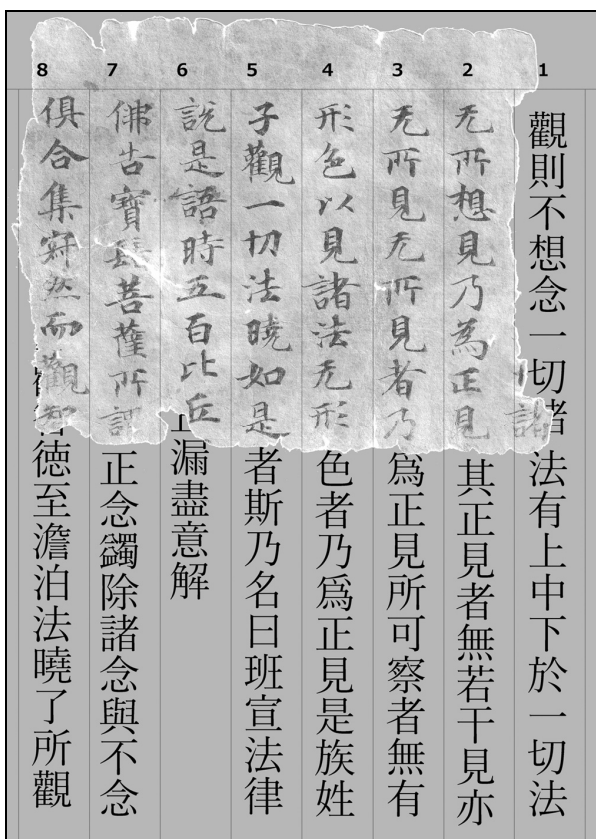 8 7 6 5 4 3 2 1
觀則不想念一切諸法有上中下於一切法
无所想見乃為正見其正見者無若干見亦
无所見无所見者乃爲正見所可察者無有
形色以見諸法无形色者乃爲正見是族姓
子觀一切法曉如是者斯乃名曰班宣法律
說是語時五百比丘漏盡意解
佛告寶髻菩薩所謂正念蠲除諸念與不念
俱合集寂然而觀徳至澹泊法曉了所觀